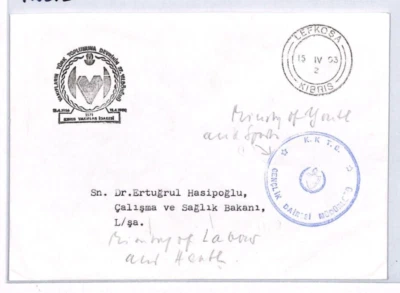 LEFKOŞA
15 IV 93
2
KIBRIS
Ministry of Youth
and Sports
K.K.T.C.
GENÇLİK DAİRESİ MÜDÜRLÜĞÜ
Sn. Dr.Ertuğrul Hasipoğlu,
Çalışma ve Sağlık Bakanı,
L/şa.
Ministry of Labour
and Health